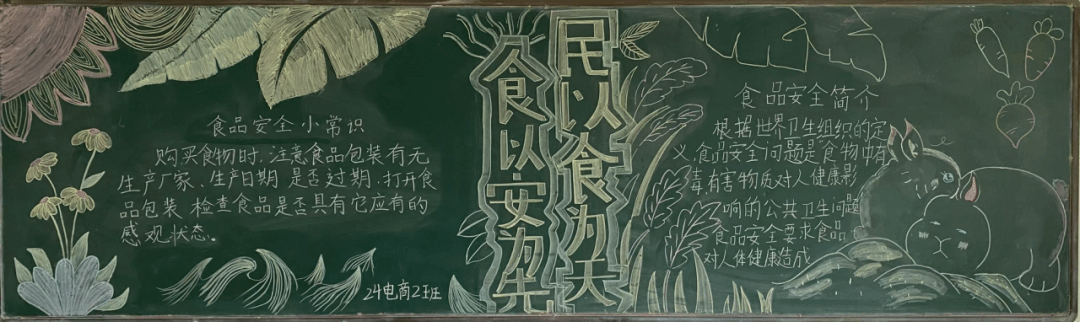 食品安全小常识
购买食物时,注意食品包装有无
生产厂家、生产日期 是否过期,打开食
品包装 检查食品是否具有它应有的
感观状态。
24电商2班
民以食为天
食以安为先
食品安全简介
根据世界卫生组织的定
义,食品安全问题是食物中有
毒有害物质对人健康影
响的公共卫生问题
食品安全要求食品
对人体健康造成